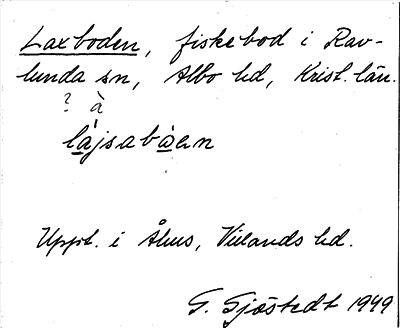 Laxboden, fiskebod i Rav-
lunda sn, Albo hd, Krist. län.
? à
låjsabàen
Uppt. i Åhus, Villands hd.
G. Sjöstedt 1949